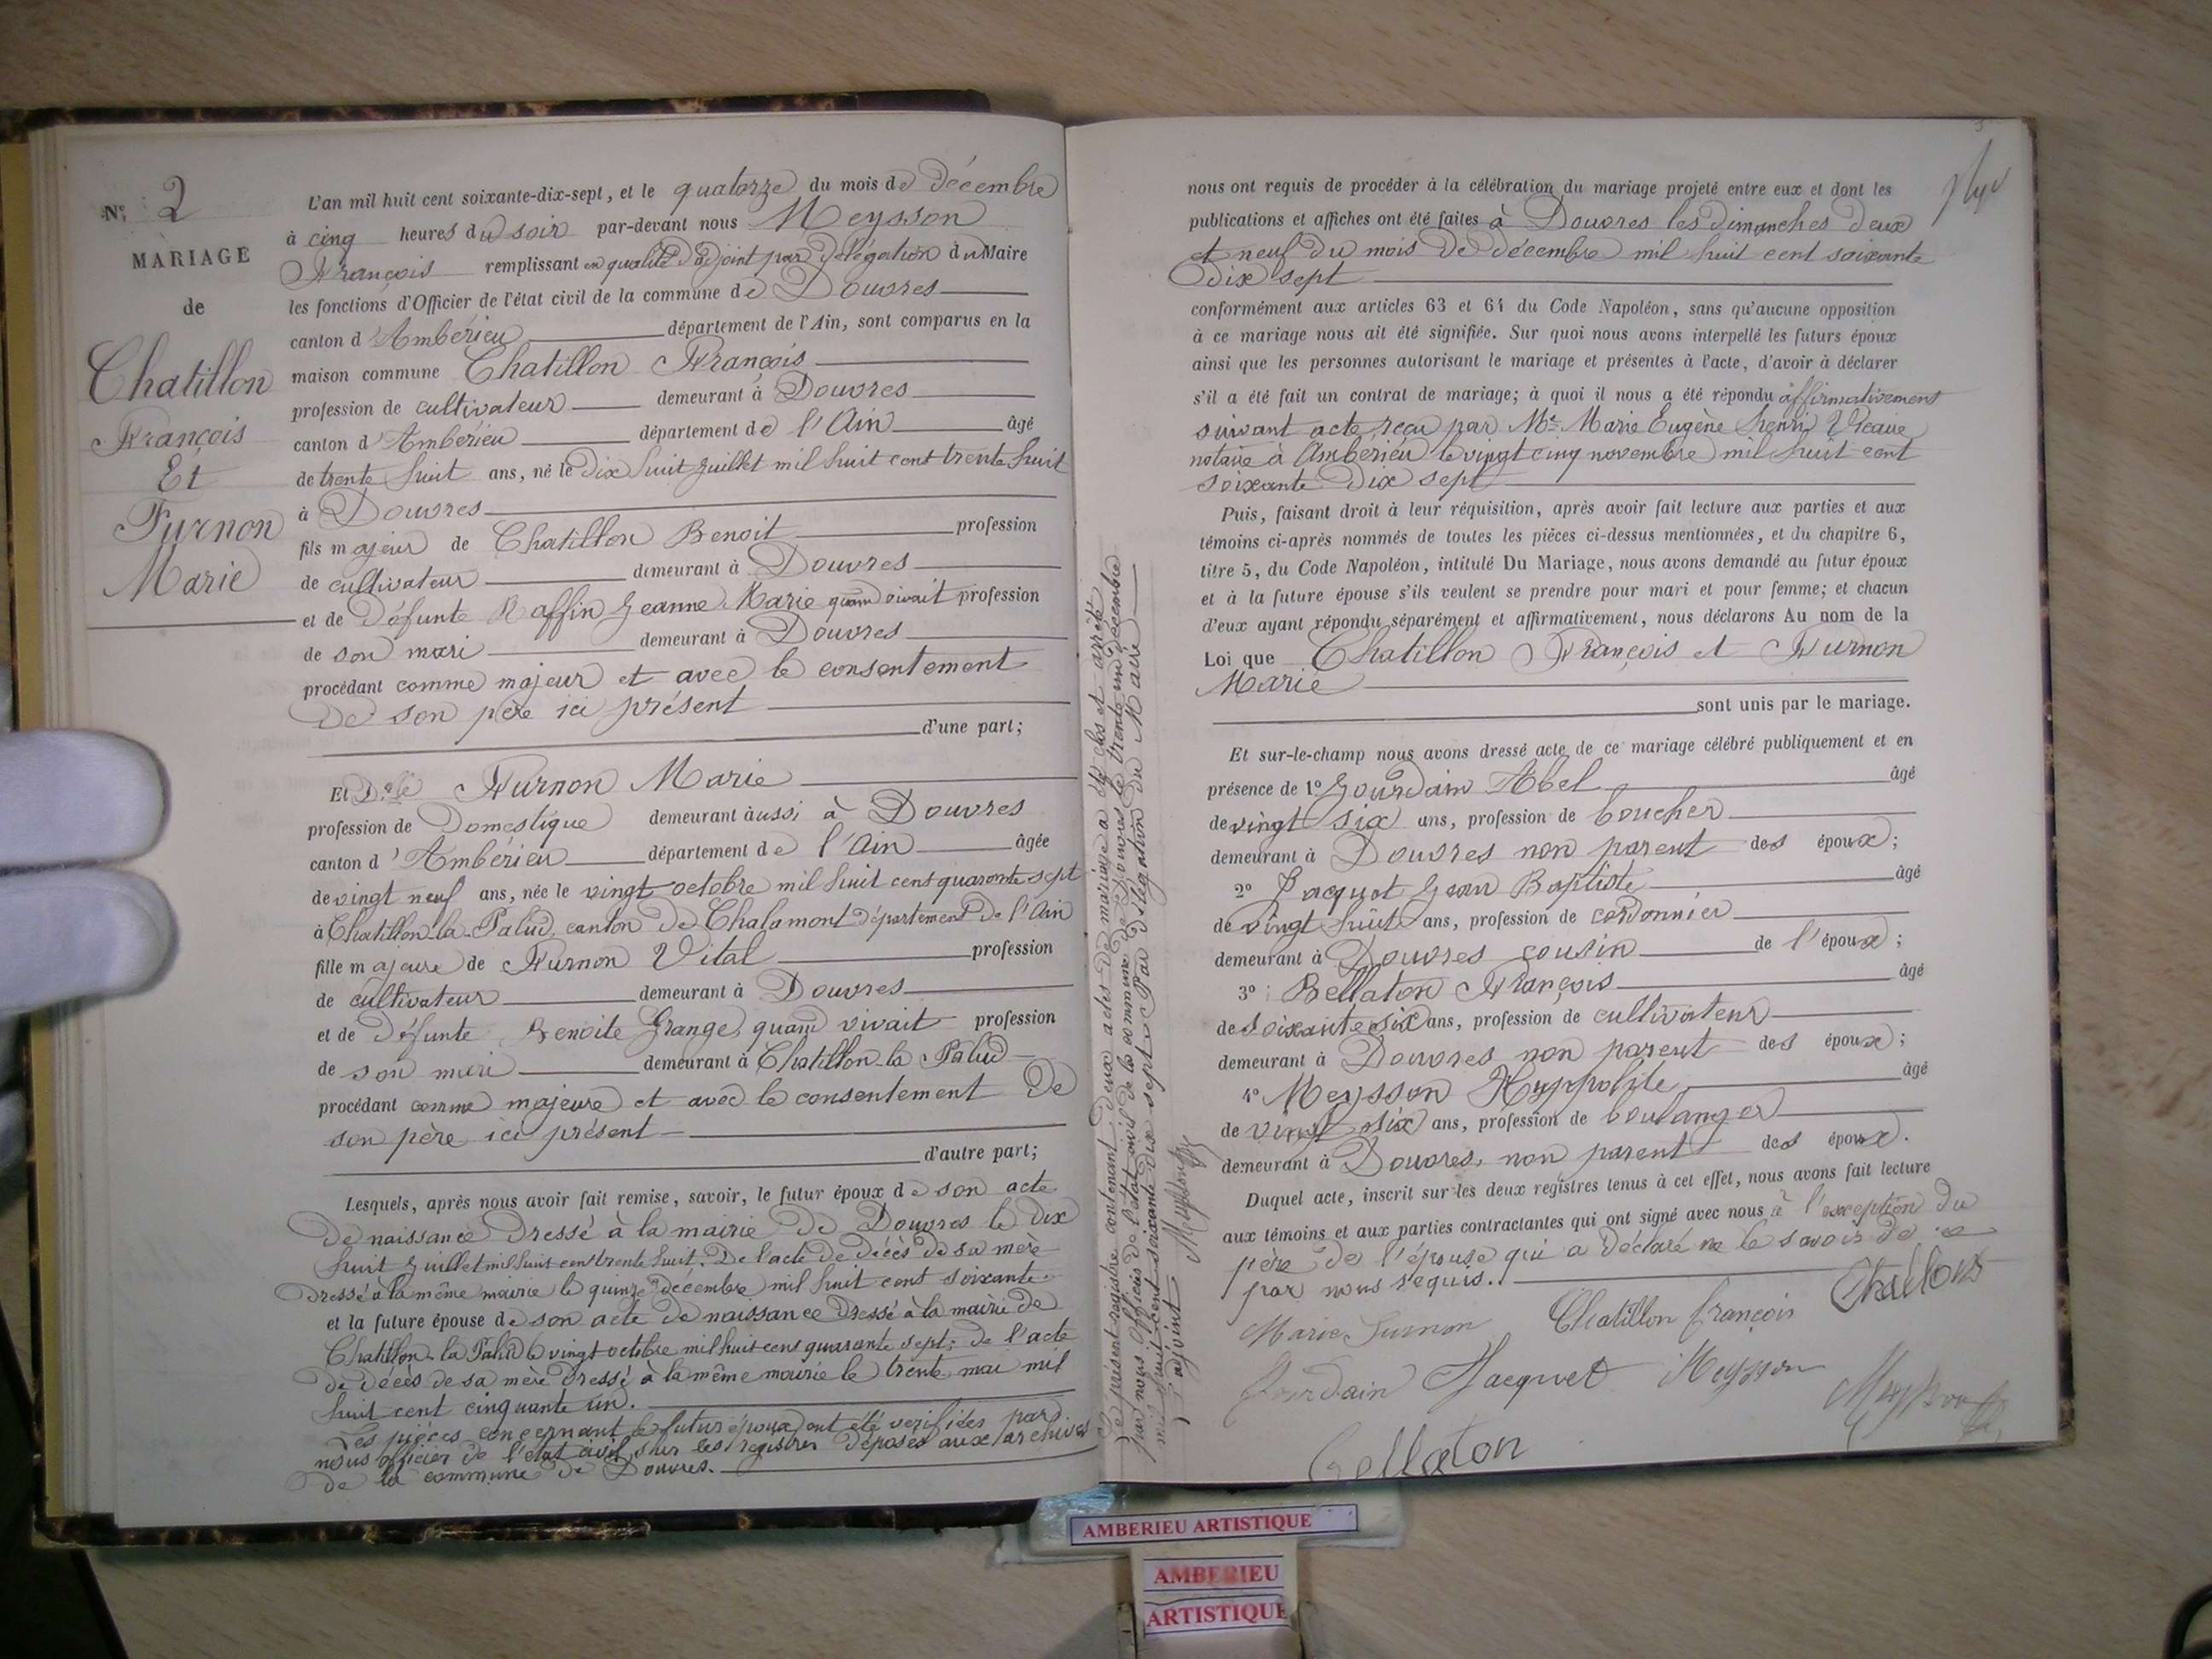 N° 2
MARIAGE
de
Chatillon
François
Et
Furnon
Marie
L'an mil huit cent soixante-dix-sept, et le quatorze du mois de décembre
à cinq heures du soir par-devant nous Meysson
François remplissant en qualité d'adjoint par délégation du Maire
les fonctions d'Officier de l'état civil de la commune de Douvres
canton d'Ambérieu département de l'Ain, sont comparus en la
maison commune Chatillon François
profession de cultivateur demeurant à Douvres
canton d'Ambérieu département de l'Ain âgé
de trente huit ans, né le dix huit juillet mil huit cent trente huit
à Douvres
fils majeur de Chatillon Benoit profession
de cultivateur demeurant à Douvres
et de défunte Raffin Jeanne Marie quand vivait profession
de son mari demeurant à Douvres
procédant comme majeur et avec le consentement
de son père ici présent
d'une part;
Et Dlle Furnon Marie
profession de Domestique demeurant aussi à Douvres
canton d'Ambérieu département de l'Ain âgée
de vingt neuf ans, née le vingt octobre mil huit cent quarante sept
à Chatillon-la-Palud, canton de Chalamont département de l'Ain
fille majeure de Furnon Vital profession
de cultivateur demeurant à Douvres
et de défunte Benoite Grange, quand vivait profession
de son mari demeurant à Chatillon-la Palud
procédant comme majeure et avec le consentement de
son père ici présent
d'autre part;
Lesquels, après nous avoir fait remise, savoir, le futur époux de son acte
de naissance dressé à la mairie de Douvres le dix
huit juillet mil huit cent trente huit. De l'acte de décès de sa mère
dressé à la même mairie le quinze décembre mil huit cent soixante.
et la future épouse de son acte de naissance dressé à la mairie de
Chatillon-la Palud le vingt octobre mil huit cent quarante sept; de l'acte
de décès de sa mère dressé à la même mairie le trente mai mil
huit cent cinquante un.
Les pièces concernant le futur époux ont été verifiées par
nous officier de l'état civil, sur les registres déposés aux archives
de la commune de Douvres.
Le présent registre contenant deux actes de mariage a été clos et arrêté
par nous Officier de l'état civil de la commune de Douvres le trente un décembre
mil huit cent soixante dix sept. Par délégation du Maire
l'adjoint
Meysson
nous ont requis de procéder à la célébration du mariage projeté entre eux et dont les
publications et affiches ont été faites à Douvres les dimanches deux
et neuf du mois de décembre mil huit cent soixante
dix sept
conformément aux articles 63 et 64 du Code Napoléon, sans qu'aucune opposition
à ce mariage nous ait été signifiée. Sur quoi nous avons interpellé les futurs époux
ainsi que les personnes autorisant le mariage et présentes à l'acte, d'avoir à déclarer
s'il a été fait un contrat de mariage; à quoi il nous a été répondu affirmativement
suivant acte reçu par Me Marie Eugène Henri
notaire à Ambérieu le vingt cinq novembre mil huit cent
soixante dix sept
Puis, faisant droit à leur réquisition, après avoir fait lecture aux parties et aux
témoins ci-après nommés de toutes les pièces ci-dessus mentionnées, et du chapitre 6,
titre 5, du Code Napoléon, intitulé Du Mariage, nous avons demandé au futur époux
et à la future épouse s'ils veulent se prendre pour mari et pour femme; et chacun
d'eux ayant répondu séparément et affirmativement, nous déclarons Au nom de la
Loi que Chatillon François et Furnon
Marie
sont unis par le mariage.
Et sur-le-champ nous avons dressé acte de ce mariage célébré publiquement et en
présence de 1° Jourdain Abel âgé
de vingt six ans, profession de boucher
demeurant à Douvres non parent des époux;
2° Jacquet Jean Baptiste âgé
de vingt huit ans, profession de cordonnier
demeurant à Douvres cousin de l'époux;
3° Bellaton François âgé
de soixante six ans, profession de cultivateur
demeurant à Douvres non parent des époux;
4° Meysson Hyppolite âgé
de vingt six ans, profession de boulanger
demeurant à Douvres, non parent des époux.
Duquel acte, inscrit sur les deux registres tenus à cet effet, nous avons fait lecture
aux témoins et aux parties contractantes qui ont signé avec nous à l'exception du
père de l'épouse qui a déclaré ne le savoir de ce
par nous requis.
Marie Furnon Chatillon françois
Jourdain Jacquet Meysson Meysson
Bellaton
AMBERIEU ARTISTIQUE
AMBERIEU
ARTISTIQUE